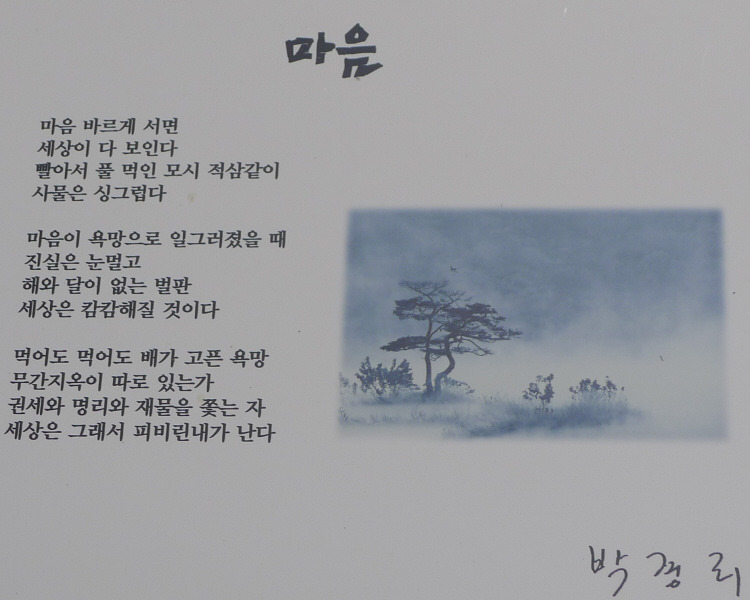 마음
마음 바르게 서면
세상이 다 보인다
빨아서 풀 먹인 모시 적삼같이
사물은 싱그럽다
마음이 욕망으로 일그러졌을 때
진실은 눈멀고
해와 달이 없는 벌판
세상은 캄캄해질 것이다
먹어도 먹어도 배가 고픈 욕망
무간지옥이 따로 있는가
권세와 명리와 재물을 좇는 자
세상은 그래서 피비린내가 난다
박경리